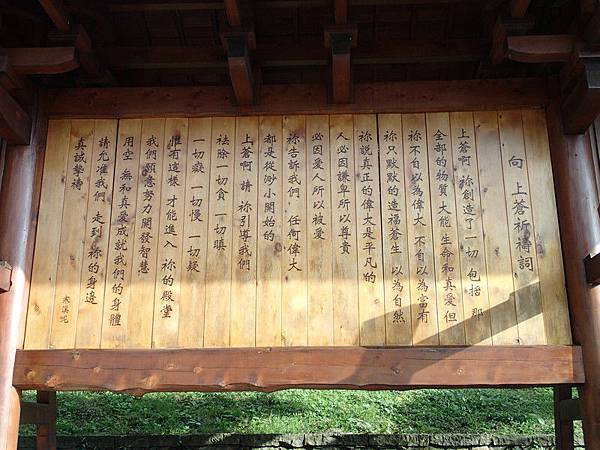 向 上蒼祈禱詞
上蒼啊 祢創造了一切 包括 那
全部的物質 大能 生命和真愛 但
祢不自以為偉大 不自以為富有
祢只默默的造福蒼生 以為自然
祢說真正的偉大是平凡的
人必因謙卑所以尊貴
必因愛人所以被愛
祢告訴我們 任何偉大
都是從渺小開始的
上蒼啊 請 祢引導我們
祛除一切貪 一切嗔
一切癡 一切慢 一切疑
惟有這樣 才能進入 祢的殿堂
我們願意努力開發智慧
用空 無和真愛成就我們的身體
請允准我們 走到 祢的身邊
真誠摯禱